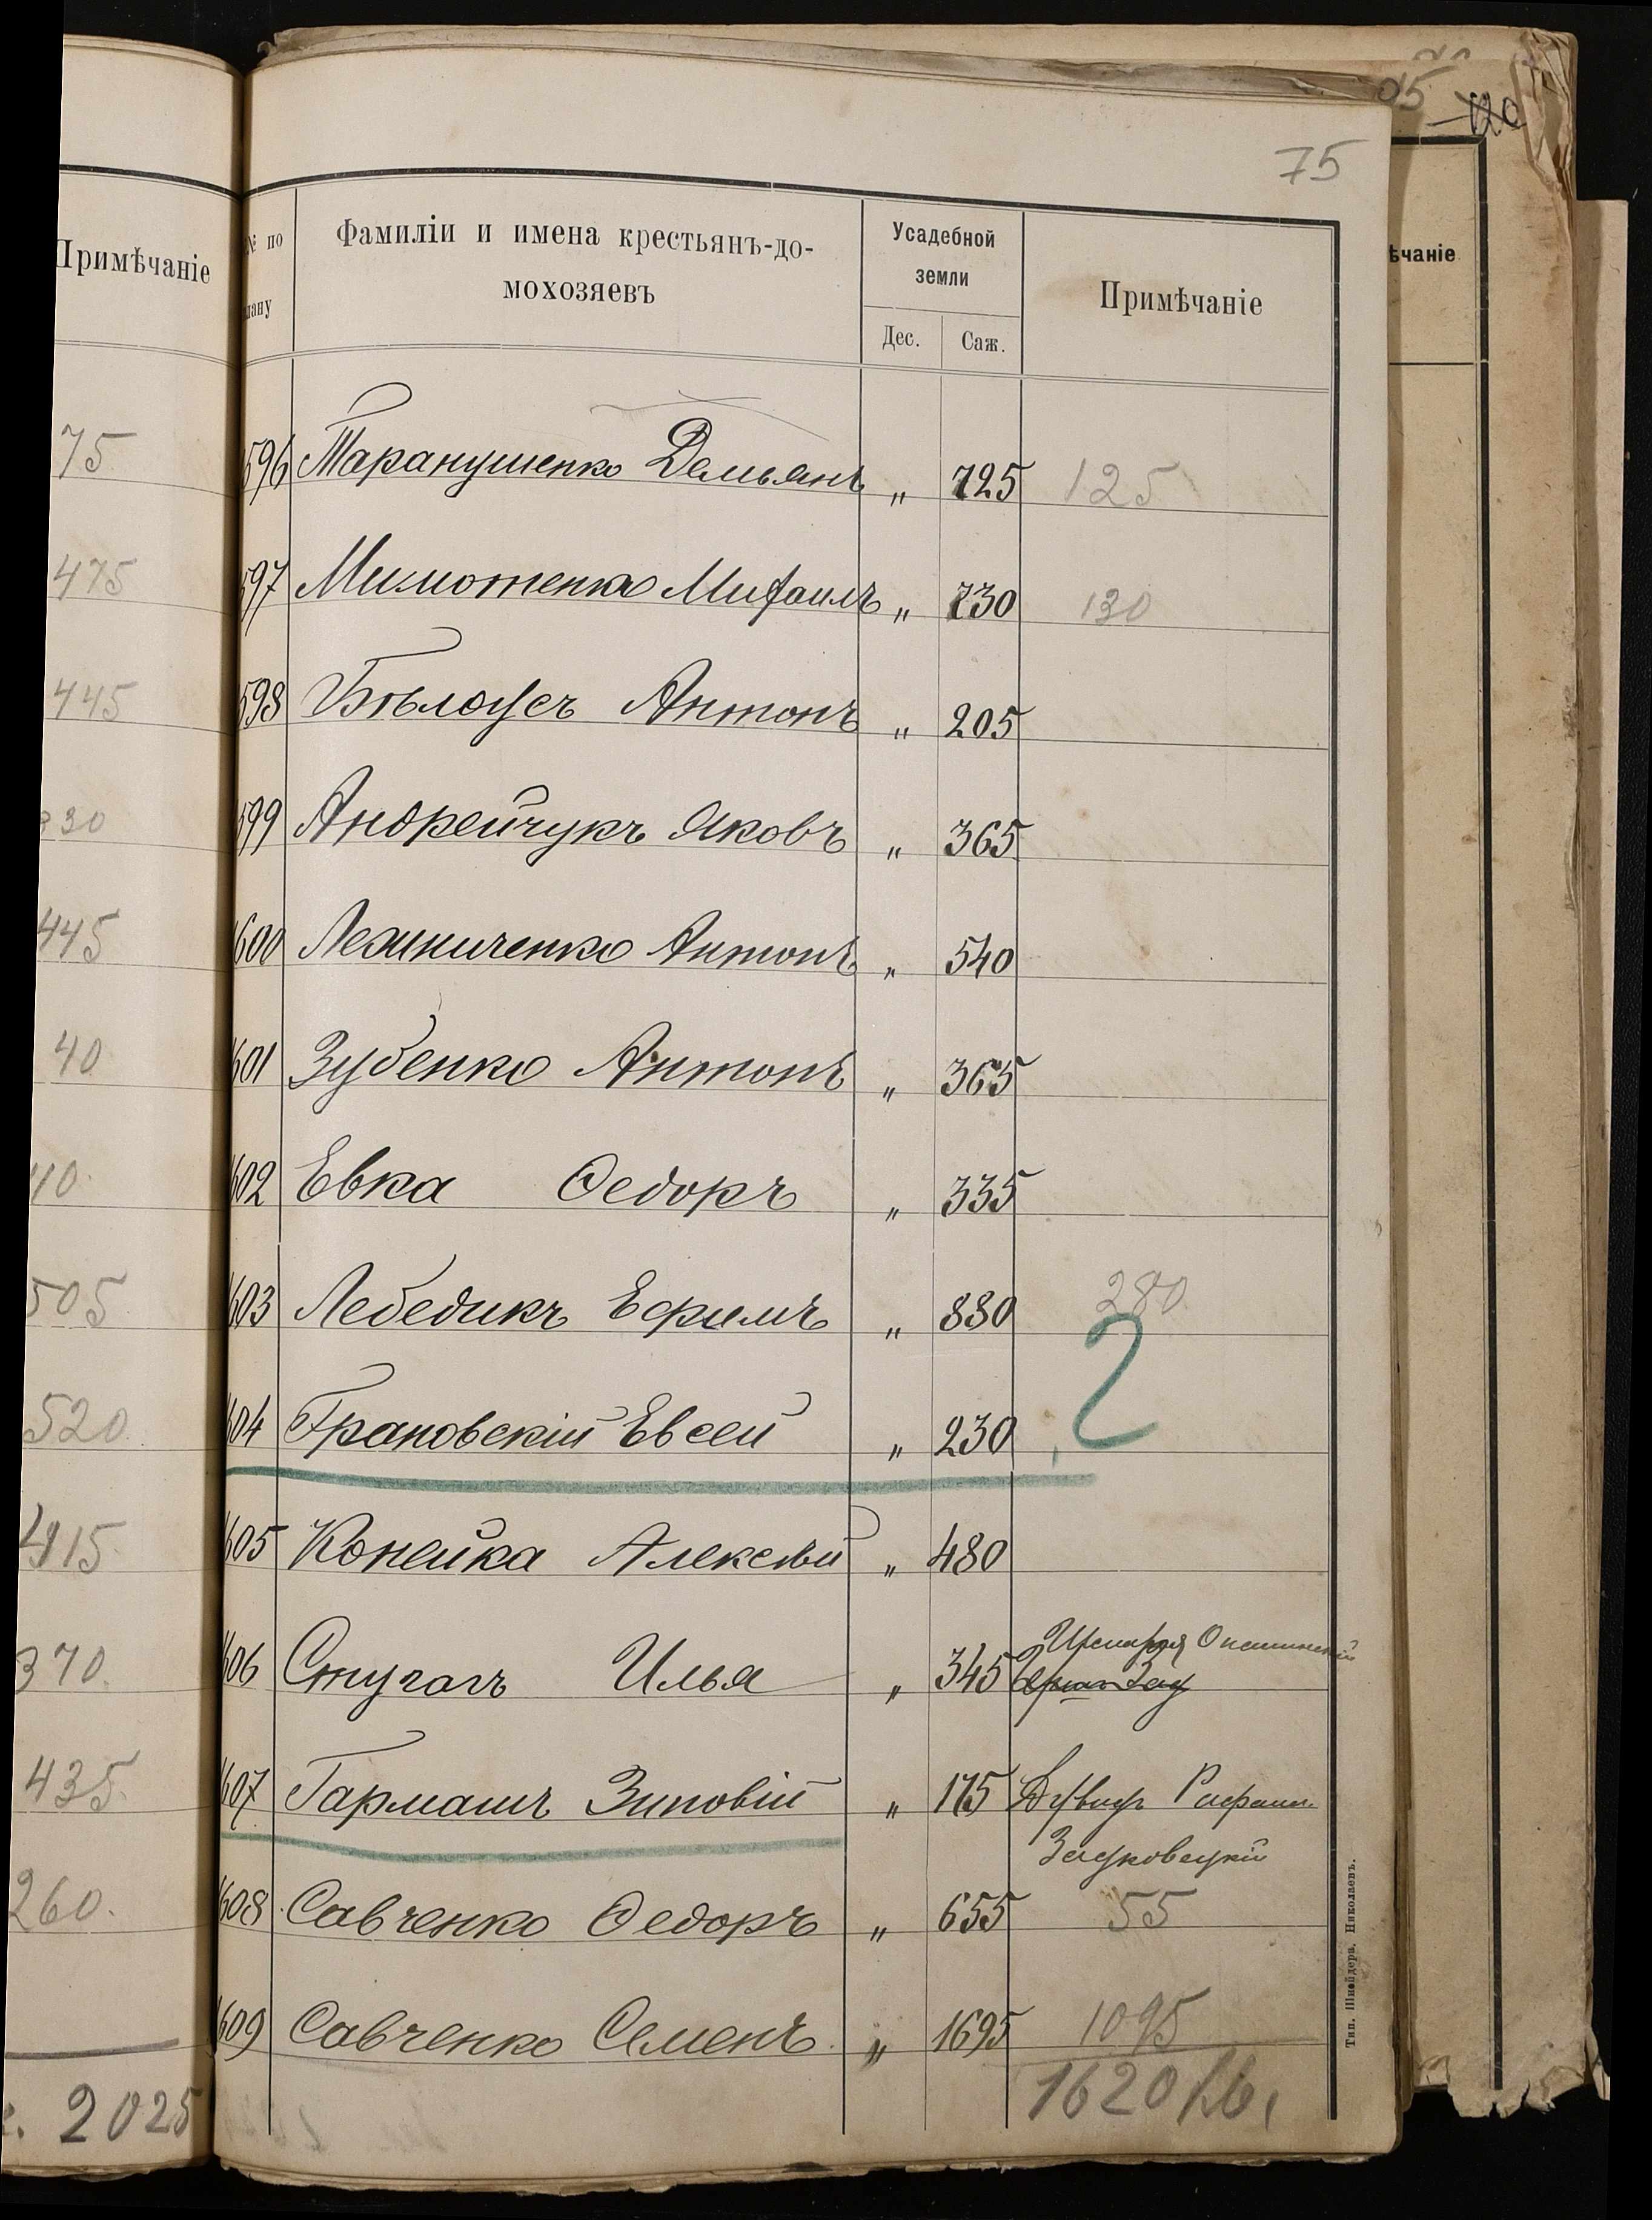 75
Примѣчаніе
75
475
445
330
445
40
505
520
415
370
435
260.
2025
№ по
Фамиліи и имена крестьянъ-до-
мохозяевъ
Усадебной
земли
Дес.
Саж.
Примѣчаніе
596 Таранушенко Демьянъ " 725 125
597 Михаилъ " 730 130
598 Бѣлоусъ Антонъ " 205
599 Андрейчукъ Яковъ " 365
600 Антонъ " 540
601 Зубенко Антонъ " 365
602 Евка Ѳедоръ " 335
603 Лебедикъ Ефимъ " 880 280
2
604 Грановскій Евсей " 230
605 Конейка Алексѣй " 480
606 Илья " 345
607 Гармашъ Зиновій " 175
608 Савченко Ѳедоръ " 655 55
609 Савченко Семенъ " 1695 1095
1620
ѣчаніе
Тип. Шнейдера. Николаевъ.